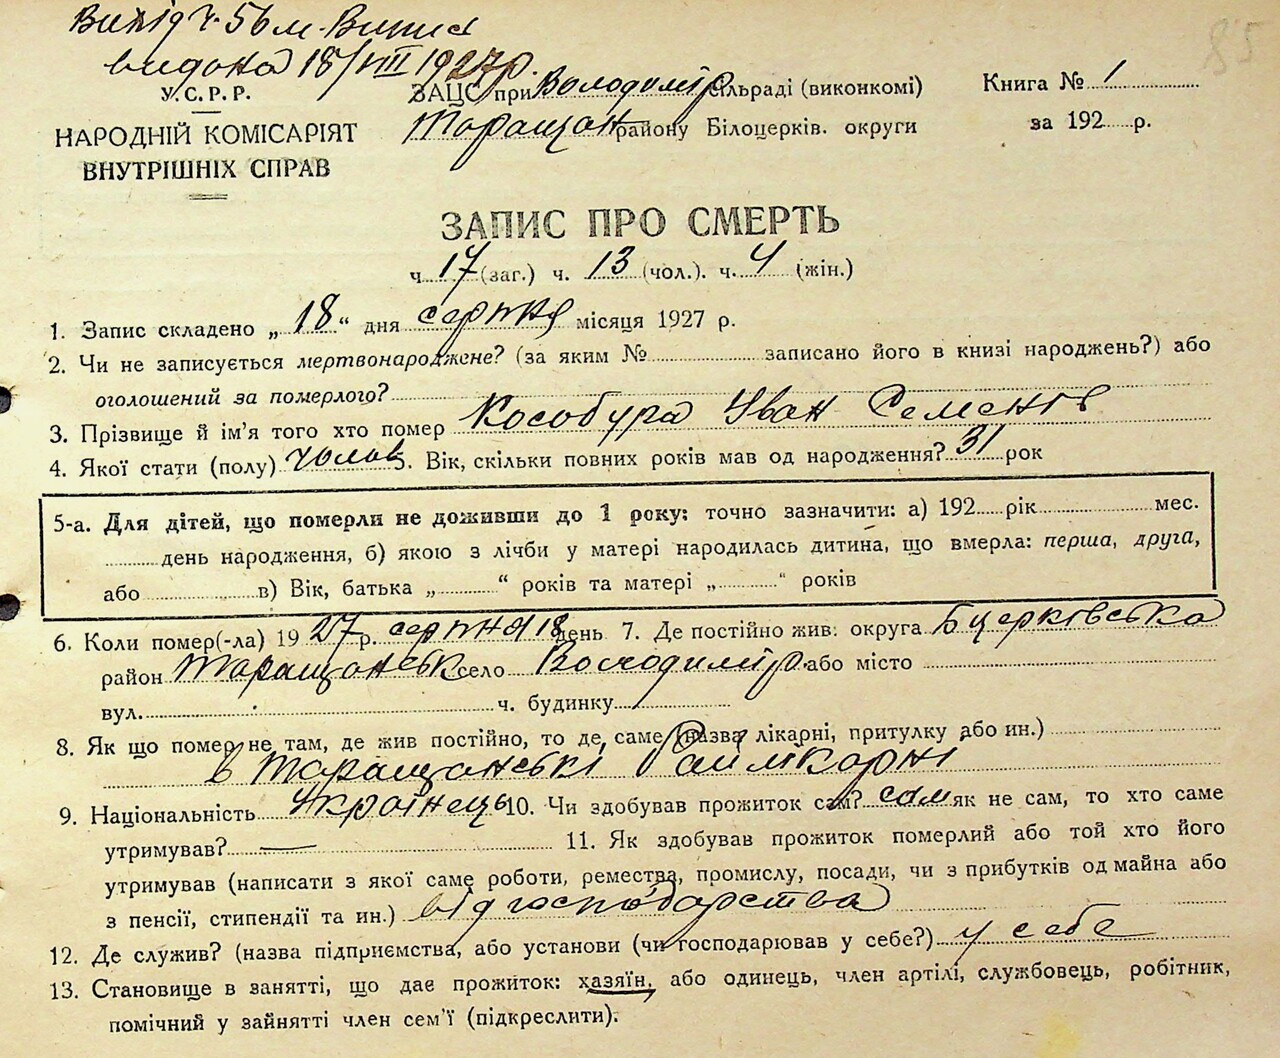 Вихід ч. 56 м. Випис
видана 18/VIII 1927 р.
85
У.С.Р.Р.
НАРОДНІЙ КОМІСАРІЯТ
ВНУТРІШНІХ СПРАВ
ЗАЦС при Володимір сільраді (виконкомі)
Таращан району Білоцерків. округи
Книга № 1
за 192 р.
ЗАПИС ПРО СМЕРТЬ
ч. 17 (заг.) ч. 13 (чол.). ч. 4 (жін.)
1. Запис складено „ 18 “ дня серпня місяця 1927 р.
2. Чи не записується мертвонароджене? (за яким № записано його в книзі народжень?) або
оголошений за померлого?
3. Прізвище й ім'я того хто помер Кособура Іван Семенів
4. Якої стати (полу) чолов 5. Вік, скільки повних років мав од народження? 31 рок
5-а. Для дітей, що померли не доживши до 1 року: точно зазначити: а) 192 рік мес.
день народження, б) якою з лічби у матері народилась дитина, що вмерла: перша, друга,
або в) Вік, батька „ “ років та матері „ “ років
6. Коли помер(-ла) 19 27 р. серпня 18 день 7. Де постійно жив: округа Бцерковська
район Таращанськ село Володимір. або місто
вул. ч. будинку
8. Як що помер не там, де жив постійно, то де саме (назва лікарні, притулку або ин.)
в Таращанські Райлікарні
9. Національність Українець 10. Чи здобував прожиток сам? сам як не сам, то хто саме
утримував? — 11. Як здобував прожиток померлий або той хто його
утримував (написати з якої саме роботи, ремества, промислу, посади, чи з прибутків од майна або
з пенсії, стипендії та ин.) від господарства
12. Де служив? (назва підприємства, або установи (чи господарював у себе?) у себе
13. Становище в занятті, що дає прожиток: хазяїн, або одинець, член артілі, службовець, робітник,
помічний у зайнятті член сем'ї (підкреслити).